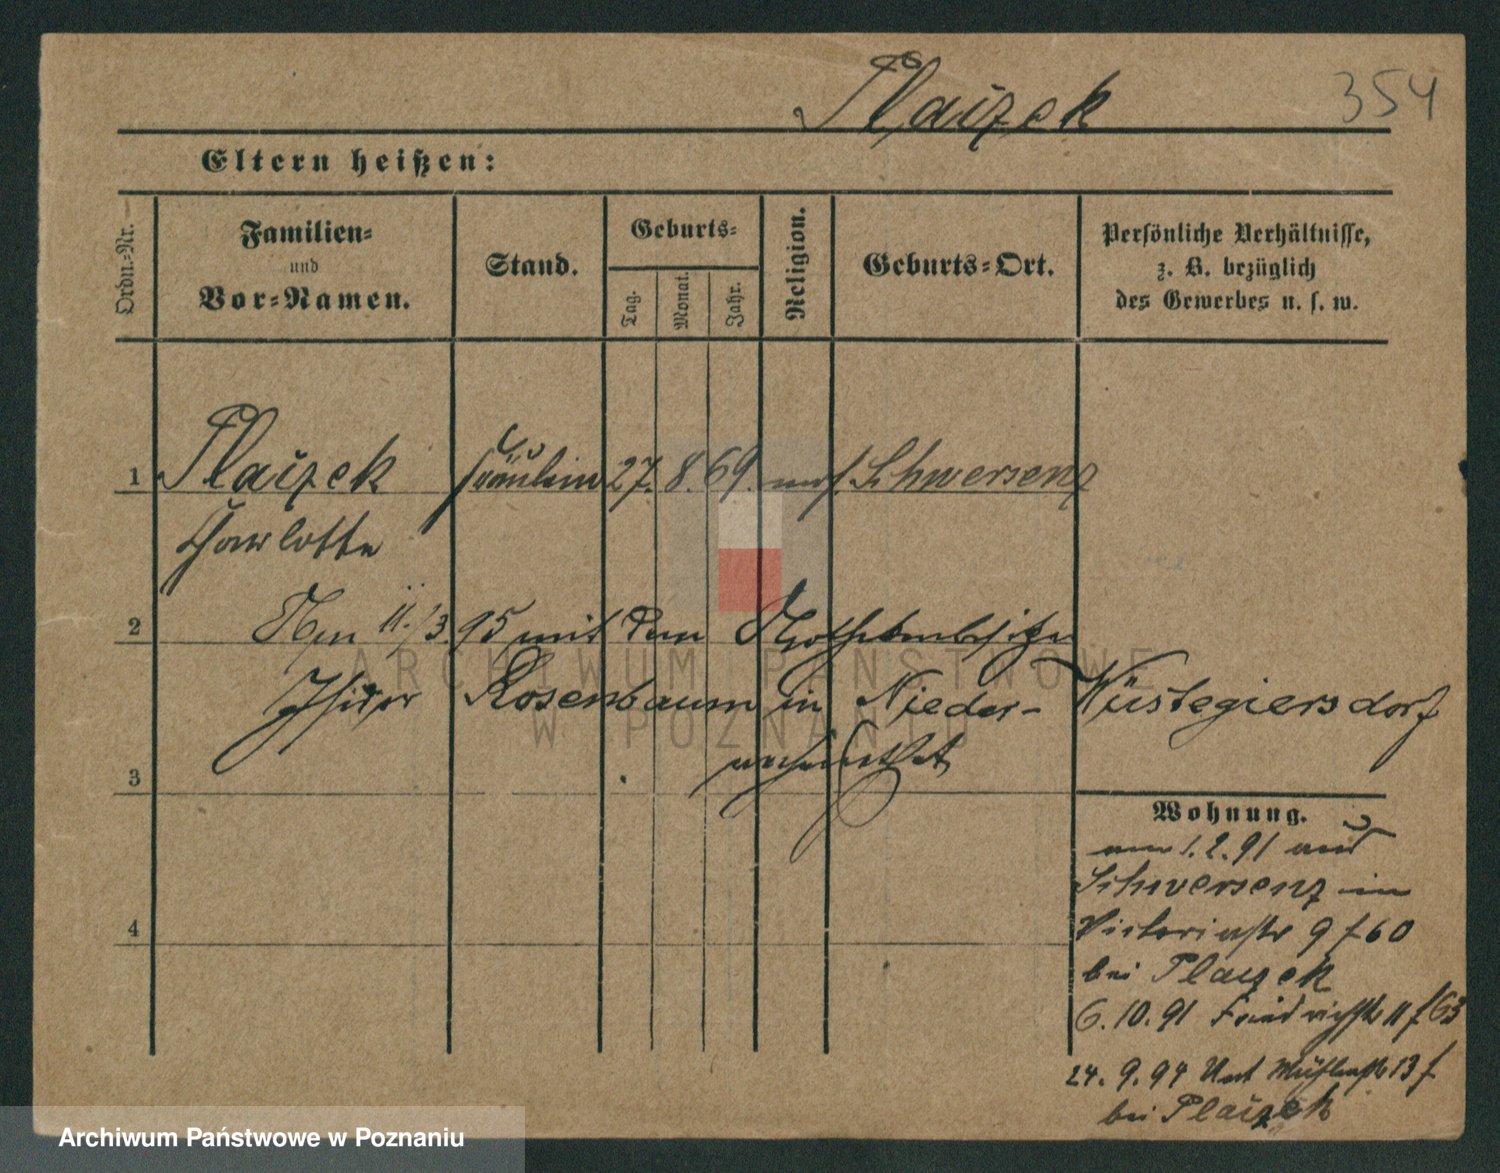 Placzek 354
Eltern heißen:
Ordn.-Nr.
Familien-
und
Vor-Namen.
Stand.
Geburts-
Tag.
Monat.
Jahr.
Religion.
Geburts-Ort.
Persönliche Verhältnisse,
z. B. bezüglich
des Gewerbes u. s. w.
1 Placzek Fräulein 27. 8. 69. mos. Schwersenz
Charlotte
2 Am 11./3. 95 mit dem
Isidor Rosenbaum in Nieder-Wüstegiersdorf
verheirathet
3
4
Wohnung.
am 1. 2. 91 aus
Schwersenz in
Victoriastr 9 f 60
bei Placzek
6. 10. 91 Friedrichstr 11 f 63
24. 9. 94 Unt Mühlenstr 13 f
bei Placzek
ARCHIWUM PAŃSTWOWE
W POZNANIU
Archiwum Państwowe w Poznaniu